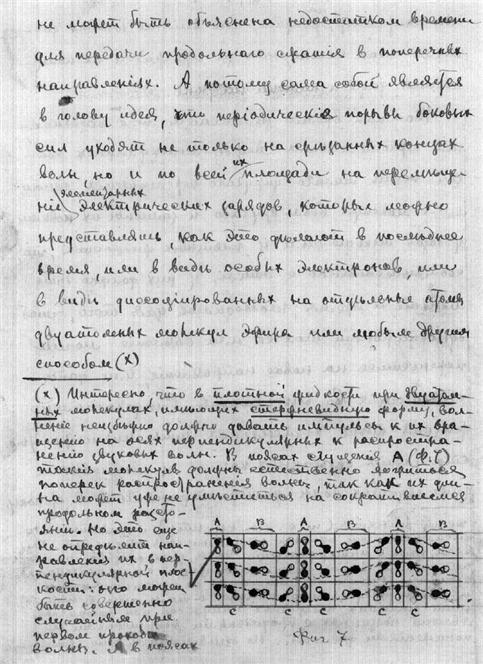 не может быть объяснена недостатком времени
для передачи продольнаго сжатія в поперечных
направленіях. А потому сама собой является
в голову идея, что періодическіе порывы боковых
сил уходят не только на срезанных концах
волн, но и по всей их площади на перемещение
элементарных
электрических зарядов, которые можно
представлять, как это делают в последнее
время, или в виде особых электронов, или
в виде диссоціированных на отдельные атомы
двуатомных молекул эфира или любым другим
способом (x)
(x) Интересно, что в плотной жидкости при двуатом-
ных молекулах, имеющих стержневидную форму, вол-
неніе неизбежно должно давать импульсы к их вра-
щенію на осях перпендикулярных к распростра-
ненію звуковых волн. В поясах сгущения А (Ф. 7)
такія молекулы должны естественно ложиться
поперек распространения волны, так как их дли-
на может уже не уместиться на сократившемся
продольном разсто-
яніи. Но это еще
не определяет нап-
равления их в пер-
пендикулярной плос-
кости: оно может
быть совершенно
случайным при
первом проходе
волны. А в поясах
А В А В А В
С С С С
Фиг 7